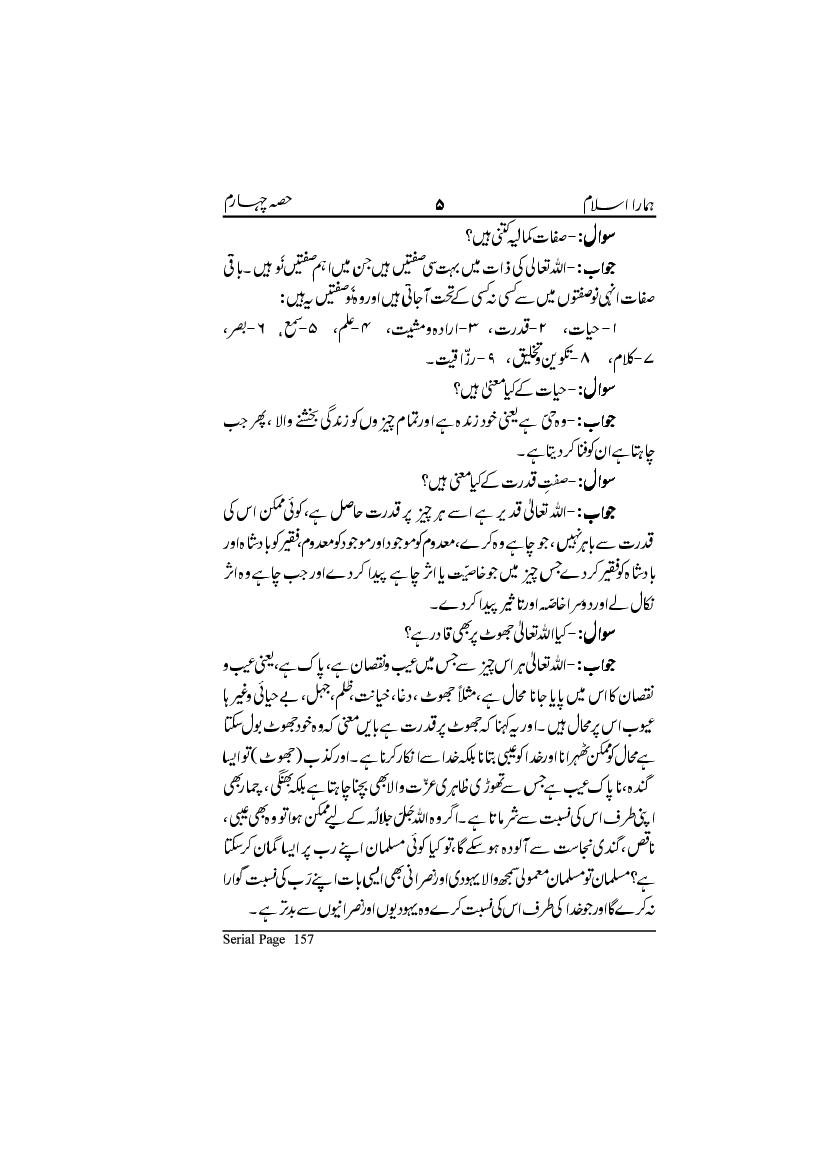 ہمارا اسلام ۵ حصہ چہارم
سوال:- صفات کمالیہ کتنی ہیں؟
جواب:- اللہ تعالی کی ذات میں بہت سی صفتیں ہیں جن میں اہم صفتیں نَو ہیں۔ باقی
صفات انہی نو صفتوں میں سے کسی نہ کسی کے تحت آجاتی ہیں اور وہ نَو صفتیں یہ ہیں:
۱- حیات، ۲- قدرت، ۳- ارادہ و مشیت، ۴- علم، ۵- سمع، ۶- بصر،
۷- کلام، ۸- تکوین و تخلیق، ۹- رزّاقیت۔
سوال:- حیات کے کیا معنیٰ ہیں؟
جواب:- وہ حیّ ہے یعنی خود زندہ ہے اور تمام چیزوں کو زندگی بخشنے والا، پھر جب
چاہتا ہے ان کو فنا کر دیتا ہے۔
سوال:- صفتِ قدرت کے کیا معنی ہیں؟
جواب:- اللہ تعالیٰ قدیر ہے اسے ہر چیز پر قدرت حاصل ہے، کوئی ممکن اس کی
قدرت سے باہر نہیں، جو چاہے وہ کرے، معدوم کو موجود اور موجود کو معدوم، فقیر کو بادشاہ اور
بادشاہ کو فقیر کر دے جس چیز میں جو خاصیّت یا اثر چاہے پیدا کر دے اور جب چاہے وہ اثر
نکال لے اور دوسرا خاصّہ اور تاثیر پیدا کر دے۔
سوال:- کیا اللہ تعالیٰ جھوٹ پر بھی قادر ہے؟
جواب:- اللہ تعالیٰ ہر اس چیز سے جس میں عیب و نقصان ہے، پاک ہے، یعنی عیب و
نقصان کا اس میں پایا جانا محال ہے، مثلاً جھوٹ، دغا، خیانت، ظلم، جہل، بے حیائی وغیرہا
عیوب اس پر محال ہیں۔ اور یہ کہنا کہ جھوٹ پر قدرت ہے بایں معنی کہ وہ خود جھوٹ بول سکتا
ہے محال کو ممکن ٹھہرانا اور خدا کو عیبی بتانا بلکہ خدا سے انکار کرنا ہے۔ اور کذب (جھوٹ) تو ایسا
گندہ، ناپاک عیب ہے جس سے تھوڑی ظاہری عزّت والا بھی بچنا چاہتا ہے بلکہ بھنگی، چمار بھی
اپنی طرف اس کی نسبت سے شرماتا ہے۔ اگر وہ اللہ جَلّ جلالُہ کے لیے ممکن ہوا تو وہ بھی عیبی،
ناقص، گندی نجاست سے آلودہ ہو سکے گا، تو کیا کوئی مسلمان اپنے رب پر ایسا گمان کر سکتا
ہے؟ مسلمان تو مسلمان معمولی سمجھ والا یہودی اور نصرانی بھی ایسی بات اپنے رَب کی نسبت گوارا
نہ کرے گا اور جو خدا کی طرف اس کی نسبت کرے وہ یہودیوں اور نصرانیوں سے بدتر ہے۔
Serial Page 157